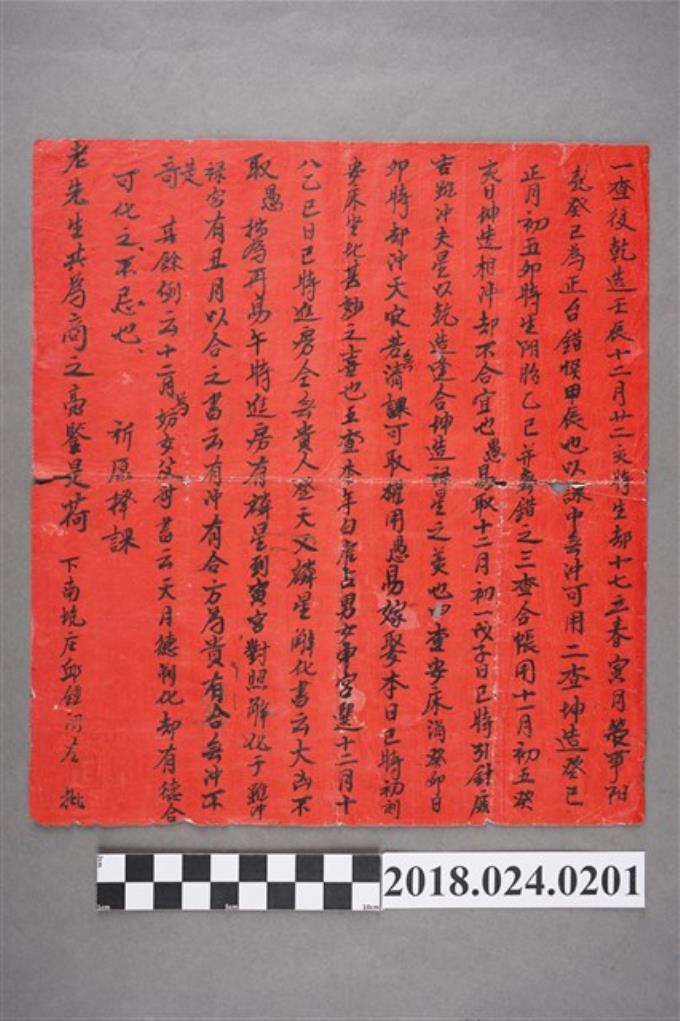 一查後乾造壬辰十二月廿二亥時生却十七立春寅月管事陽
氣癸巳為正台錯悞甲辰也以課中無沖可用二查坤造癸巳
正月初五卯時生陰胎乙巳并無錯之三查合帳用十一月初五癸
亥日坤造相沖却不合宜也愚取十二月初一戊子日巳時引針
吉雖沖夫星以乾造逢合坤造祿星之美也四查安床消癸卯日
卯時却沖天 若無清課可取權用愚易嫁娶本日巳時初刻
安床坐北甚妙之喜也五查本年白虎占男女申宮選十二月十
八乙巳日巳時進房全無貴人登天又麟星解化書云大凶不
取愚 為再易午時進房有麟星到寅宮對照解化于雖沖
祿宮有丑月以合之書云有沖有合方為貴有合無沖不
是奇 其餘例云十二月為妨女父母書云天月德制化却有德合
可化之不忌也 祈原擇課
老先生共為商之高鑒是荷 下南坑庄邱鐘 批
2018.024.0201
1cm 5cm 10cm